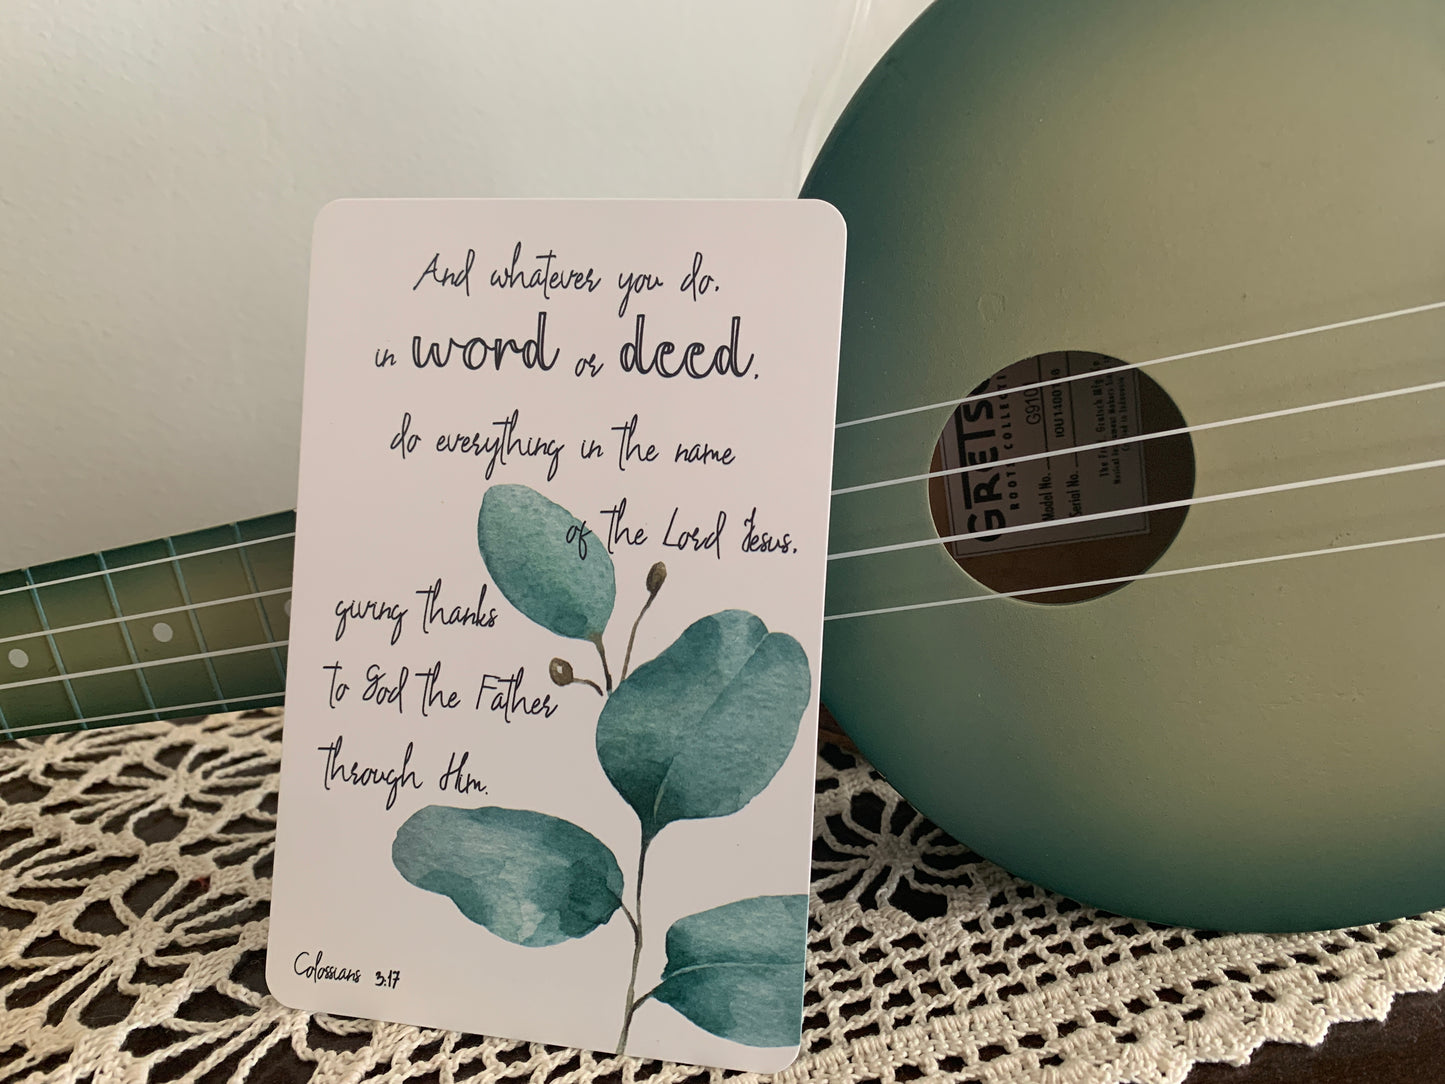 And whatever you do,
in word or deed,
do everything in the name
of the Lord Jesus,
giving thanks
to God the Father
through Him.
Colossians 3:17
GRETS
ROOTS COLLECT
Model No. G910
Serial No. IOU1400
The Fred Gretsch Mfg
Musical Instrument Makers
in Indonesia